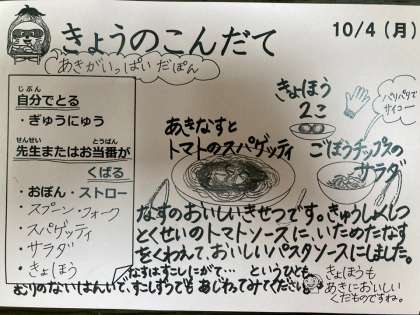 きょうのこんだて
10/4（月）
あきがいっぱいだぽん
じぶん
自分でとる
・ぎゅうにゅう
せんせい とうばん
先生またはお当番が
くばる
・おぼん・ストロー
・スプーン・フォーク
・スパゲッティ
・サラダ
・きょほう
きょほう
2こ
パリパリで
サイコー
あきなすと
トマトのスパゲッティ
ごぼうチップスの
サラダ
なすのおいしいきせつです。きゅうしょくしつ
とくせいのトマトソースに、いためたなす
をくわえて、おいしいパスタソースにしました。
なすはすこしにがて… というひとも、
むりのないはんいで、すこしずつでもあじわってみてください。
きょほうも
あきにおいしい
くだものですね。